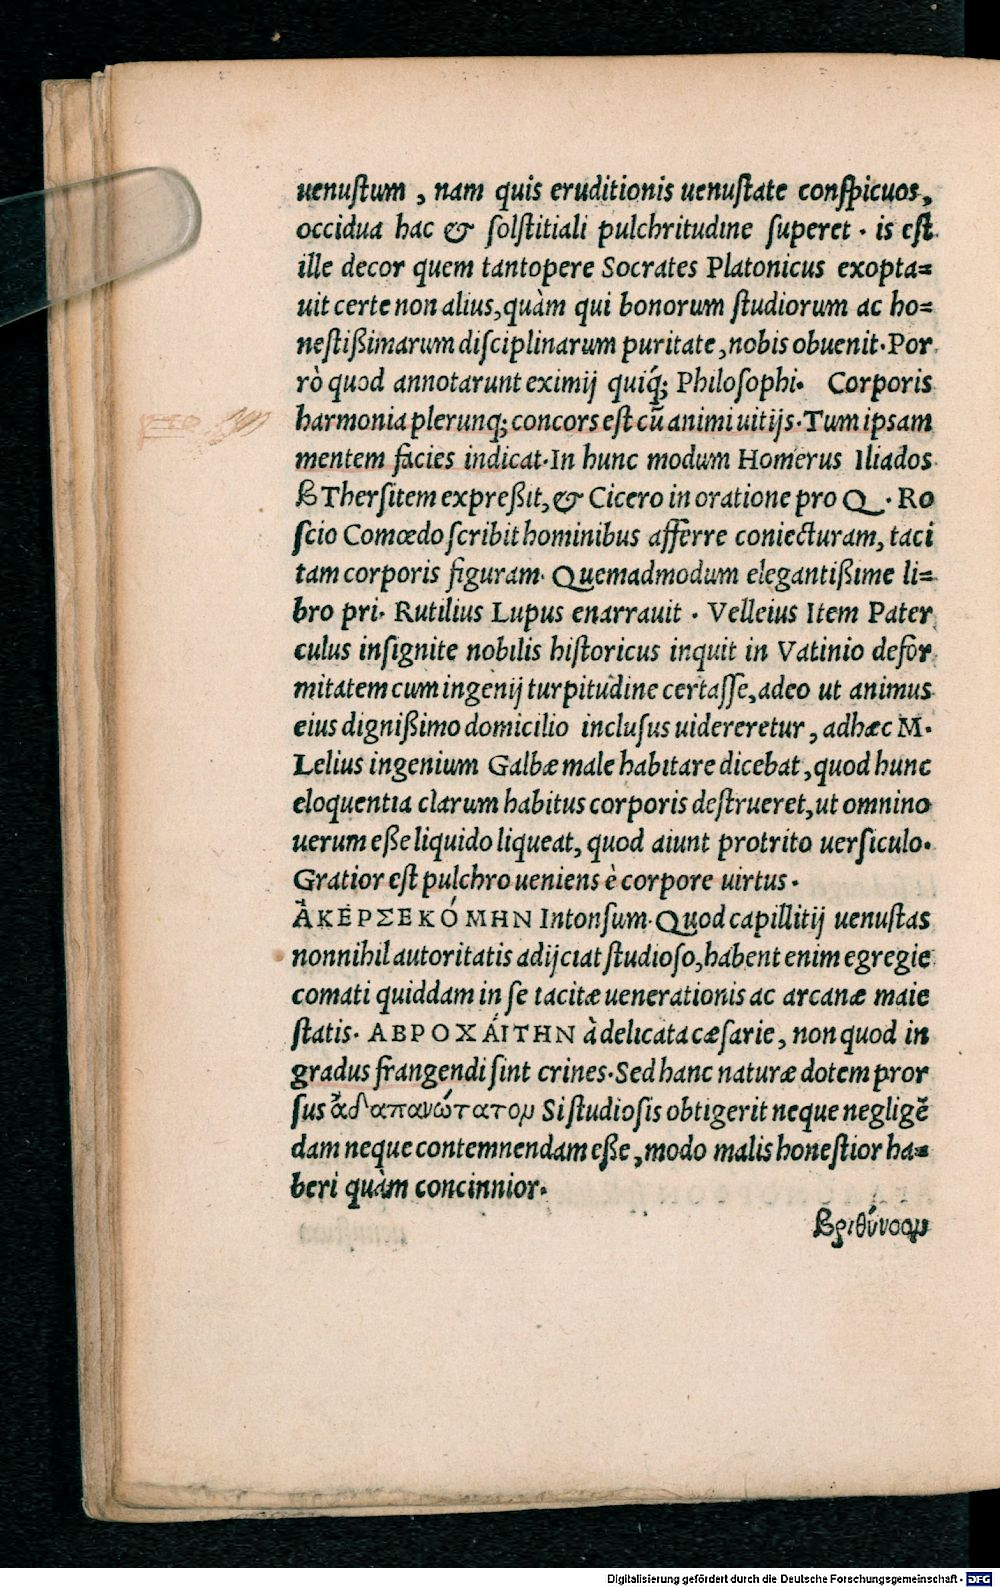 uenuſtum , nam quis eruditionis uenuſtate conſpicuos,
occidua hac & ſolſtitiali pulchritudine ſuperet . is eſt
ille decor quem tantopere Socrates Platonicus exopta=
uit certe non alius, quàm qui bonorum ſtudiorum ac ho=
neſtißimarum diſciplinarum puritate, nobis obuenit. Por
rò quod annotarunt eximij quiq́; Philoſophi. Corporis
harmonia plerunq; concors eſt cū animi uitijs. Tum ipsam
mentem facies indicat. In hunc modum Homerus Iliados
β Therſitem expreßit, & Cicero in oratione pro Q. Ro
ſcio Comœdo ſcribit hominibus afferre coniecturam, taci
tam corporis figuram. Quemadmodum elegantißime li=
bro pri. Rutilius Lupus enarrauit . Velleius Item Pater
culus inſignite nobilis hiſtoricus inquit in Vatinio defor
mitatem cum ingenij turpitudine certaſſe, adeo ut animus
eius dignißimo domicilio incluſus uidereretur, adhæc M.
Lelius ingenium Galbæ male habitare dicebat, quod hunc
eloquentia clarum habitus corporis deſtrueret, ut omnino
uerum eße liquido liqueat, quod aiunt protrito uerſiculo.
Gratior eſt pulchro ueniens è corpore uirtus.
ἈΚΕΡΣΕΚΌΜΗΝ Intonſum. Quod capillitij uenuſtas
nonnihil autoritatis adijciat ſtudioſo, habent enim egregie
comati quiddam in ſe tacitæ uenerationis ac arcanæ maie
ſtatis. ΑΒΡΟΧΆΙΤΗΝ à delicata cæſarie, non quod in
gradus frangendi ſint crines. Sed hanc naturæ dotem pror
ſus ἀδαπανώτατον Si ſtudioſis obtigerit neque negligē
dam neque contemnendam eße, modo malis honeſtior ha=
beri quàm concinnior.
βριθύνοον
Digitalisierung gefördert durch die Deutsche Forschungsgemeinschaft - DFG